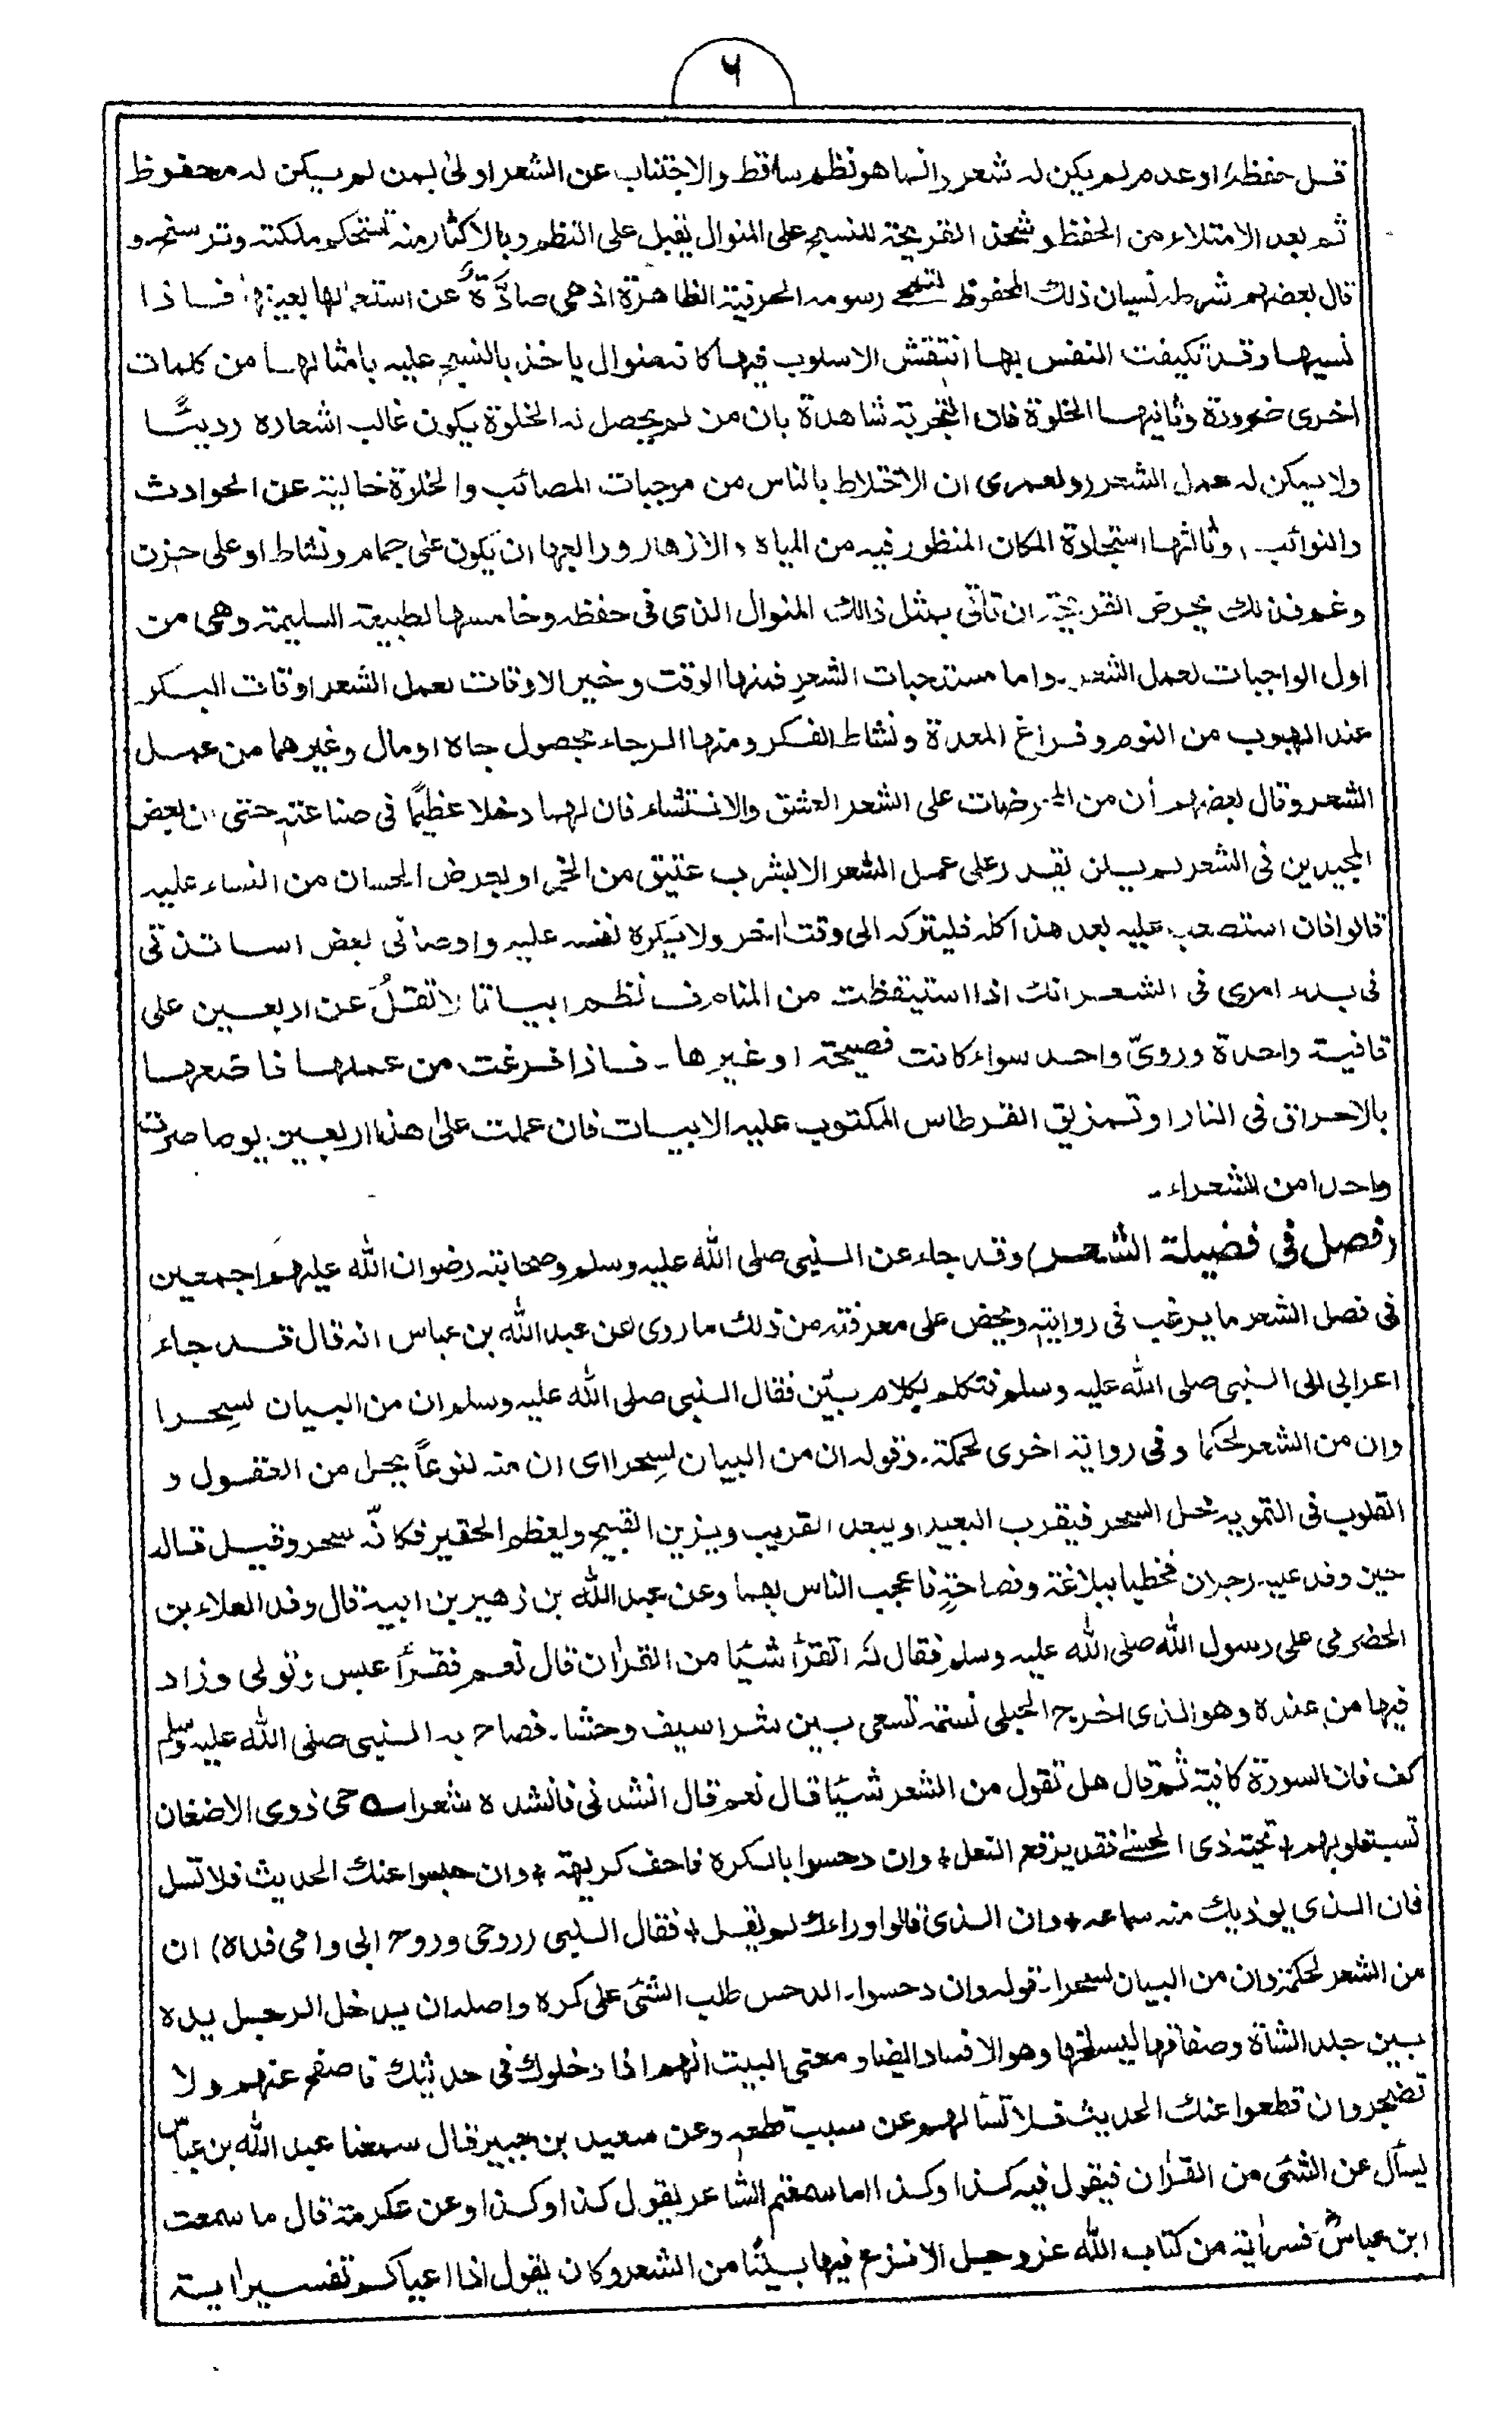 ۶
قل حفظہ او عدم لم يكن له شعر وانما هو نظم ساقط والاجتناب عن الشعر اولى بمن لم يكن له محفوظ
ثم بعد الامتلاء من الحفظ وشحذ القريحة للنسيج على المنوال يقبل على النظم وبالاكثار منه تستحكم ملكته وترسخ و
قال بعضهم شرطه نسيان ذلك المحفوظ لتمحى رسومه الحرفية الظاهرة اذ هى صادَّةٌ عن استعمالها بعينها فاذا
نسيها وقد تكيفت النفس بها انتقش الاسلوب فيها كانه منوال ياخذ بالنسيج عليه بامثالها من كلمات
اخرى ضرورة وثانيها الخلوة فان التجربة شاهدة بان من لم يحصل له الخلوة يكون غالب اشعاره رديئًا
ولا يمكن له عمل الشعر ولعمرى ان الاختلاط بالناس من موجبات المصائب والخلوة خالية عن الحوادث
والنوائب، وثالثها استجادة المكان المنظور فيه من المياه والازهار ورابعها ان يكون على جمام ونشاط او على حزن
وغم فذلك يحرض القريحة ان تأتى بمثل ذالك المنوال الذى فى حفظه وخامسها لطبيعة السليمة وهى من
اول الواجبات لعمل الشعر۔ واما مستحبات الشعرِ فمنها الوقت وخير الاوقات لعمل الشعر اوقات البكر
عند الهبوب من النوم وفراغ المعدة ونشاط الفكر ومنها الرجاء بحصول جاه او مال وغيرهما من عمل
الشعر وقال بعضهم أن من المحرضات على الشعر العشق والانتشاء فان لهما دخلا عظيمًا فى صناعته حتى ان بعض
المجيدين فى الشعر لم يكن يقدر على عمل الشعر الا بشرب عتيق من الخمر او بعرض الحسان من النساء عليه
قالوا فان استصعب عليه بعد هذا كله فليتركه الى وقت اٰخر ولا يُكره نفسه عليه واوصانى بعض اساتذتى
فى بدء امرى فى الشعر انك اذا استيقظت من المنام فنظم ابياتا لا تقلُّ عن اربعين على
قافية واحدة وروىّ واحد سواء كانت فصيحة او غيرها۔ فاذا فرغت من عملها فاضعها
بالاحراق فى النار او تمزيق القرطاس المكتوب عليه الابيات فان عملت على هذا اربعين يوما صرت
واحدا من الشعراء۔
(فصل فى فضيلة الشعر) وقد جاء عن النبى صلى الله عليه وسلم وصحابته رضوان الله عليهم اجمعين
فى فصل الشعر ما يرغب فى روايته ويحض على معرفته من ذلك ما روى عن عبد الله بن عباس انه قال قد جاء
اعرابى الى النبى صلى الله عليه وسلم فتكلم بكلام بيّن فقال النبى صلى الله عليه وسلم ان من البيان لسِحرا
وان من الشعر لحكما وفى رواية اخرى لحكمة۔ وقوله ان من البيان لسِحرا اى ان منه لنوعاً يحل من العقول و
القلوب فى التمويه محل السحر فيقرب البعيد ويبعد القريب ويزين القبيح ويعظم الحقير فكانّه سحر وقيل قاله
حين وفد عليه رجلان فخطبا ببلاغة وفصاحةٍ فاعجب الناس بهما وعن عبد الله بن زهير بن ابية قال وفد العلاء بن
الحضرمى على رسول الله صلى الله عليه وسلم فقال لہ اتقرأ شيئا من القراٰن قال نعم فقرأ عبس وتولى وزاد
فيها من عنده وهو الذى اخرج الحبلى نسمة تسعى بين شراسيف وحشا۔ فصاح به النبى صلى الله عليه وسلم
كف فان السورة كافية ثم قال هل تقول من الشعر شيئا قال نعم قال انشدنى فانشده شعرا حى ذوى الاضغان
تسب قلوبهم + تحية ذى الحسنى فقد يرفع النعل + وان دحسوا بالكره فاعف كريهة + وان حبسوا عنك الحديث فلا تسل
فان الذى يوذيك منه سماعه + وان الذى قالوا وراءك لم يقل + فقال النبى (روحى وروح ابى وامى فداه) ان
من الشعر لحكمة وان من البيان لسحرا۔ قوله وان دحسوا۔ الدحس طلب الشئى على كره واصله ان يدخل الرجل يده
بين جلد الشاة وصفاقها ليسلخها وهو الافساد ايضا ومعنى البيت انهم اذا دخلوك فى حديثك فاصفح عنهم ولا
تضجر وان قطعوا عنك الحديث فلا تسألهم عن سبب قطعه وعن سعيد بن جبير قال سمعنا عبد الله بن عباسؓ
يسأل عن الشئى من القراٰن فيقول فيه كذا وكذا اما سمعتم الشاعر يقول كذا وكذا وعن عكرمة قال ما سمعت
ابن عباسؓ فسر اٰية من كتاب الله عز وجل الا نزع فيها بيتًا من الشعر وكان يقول اذا اعياكم تفسير اية